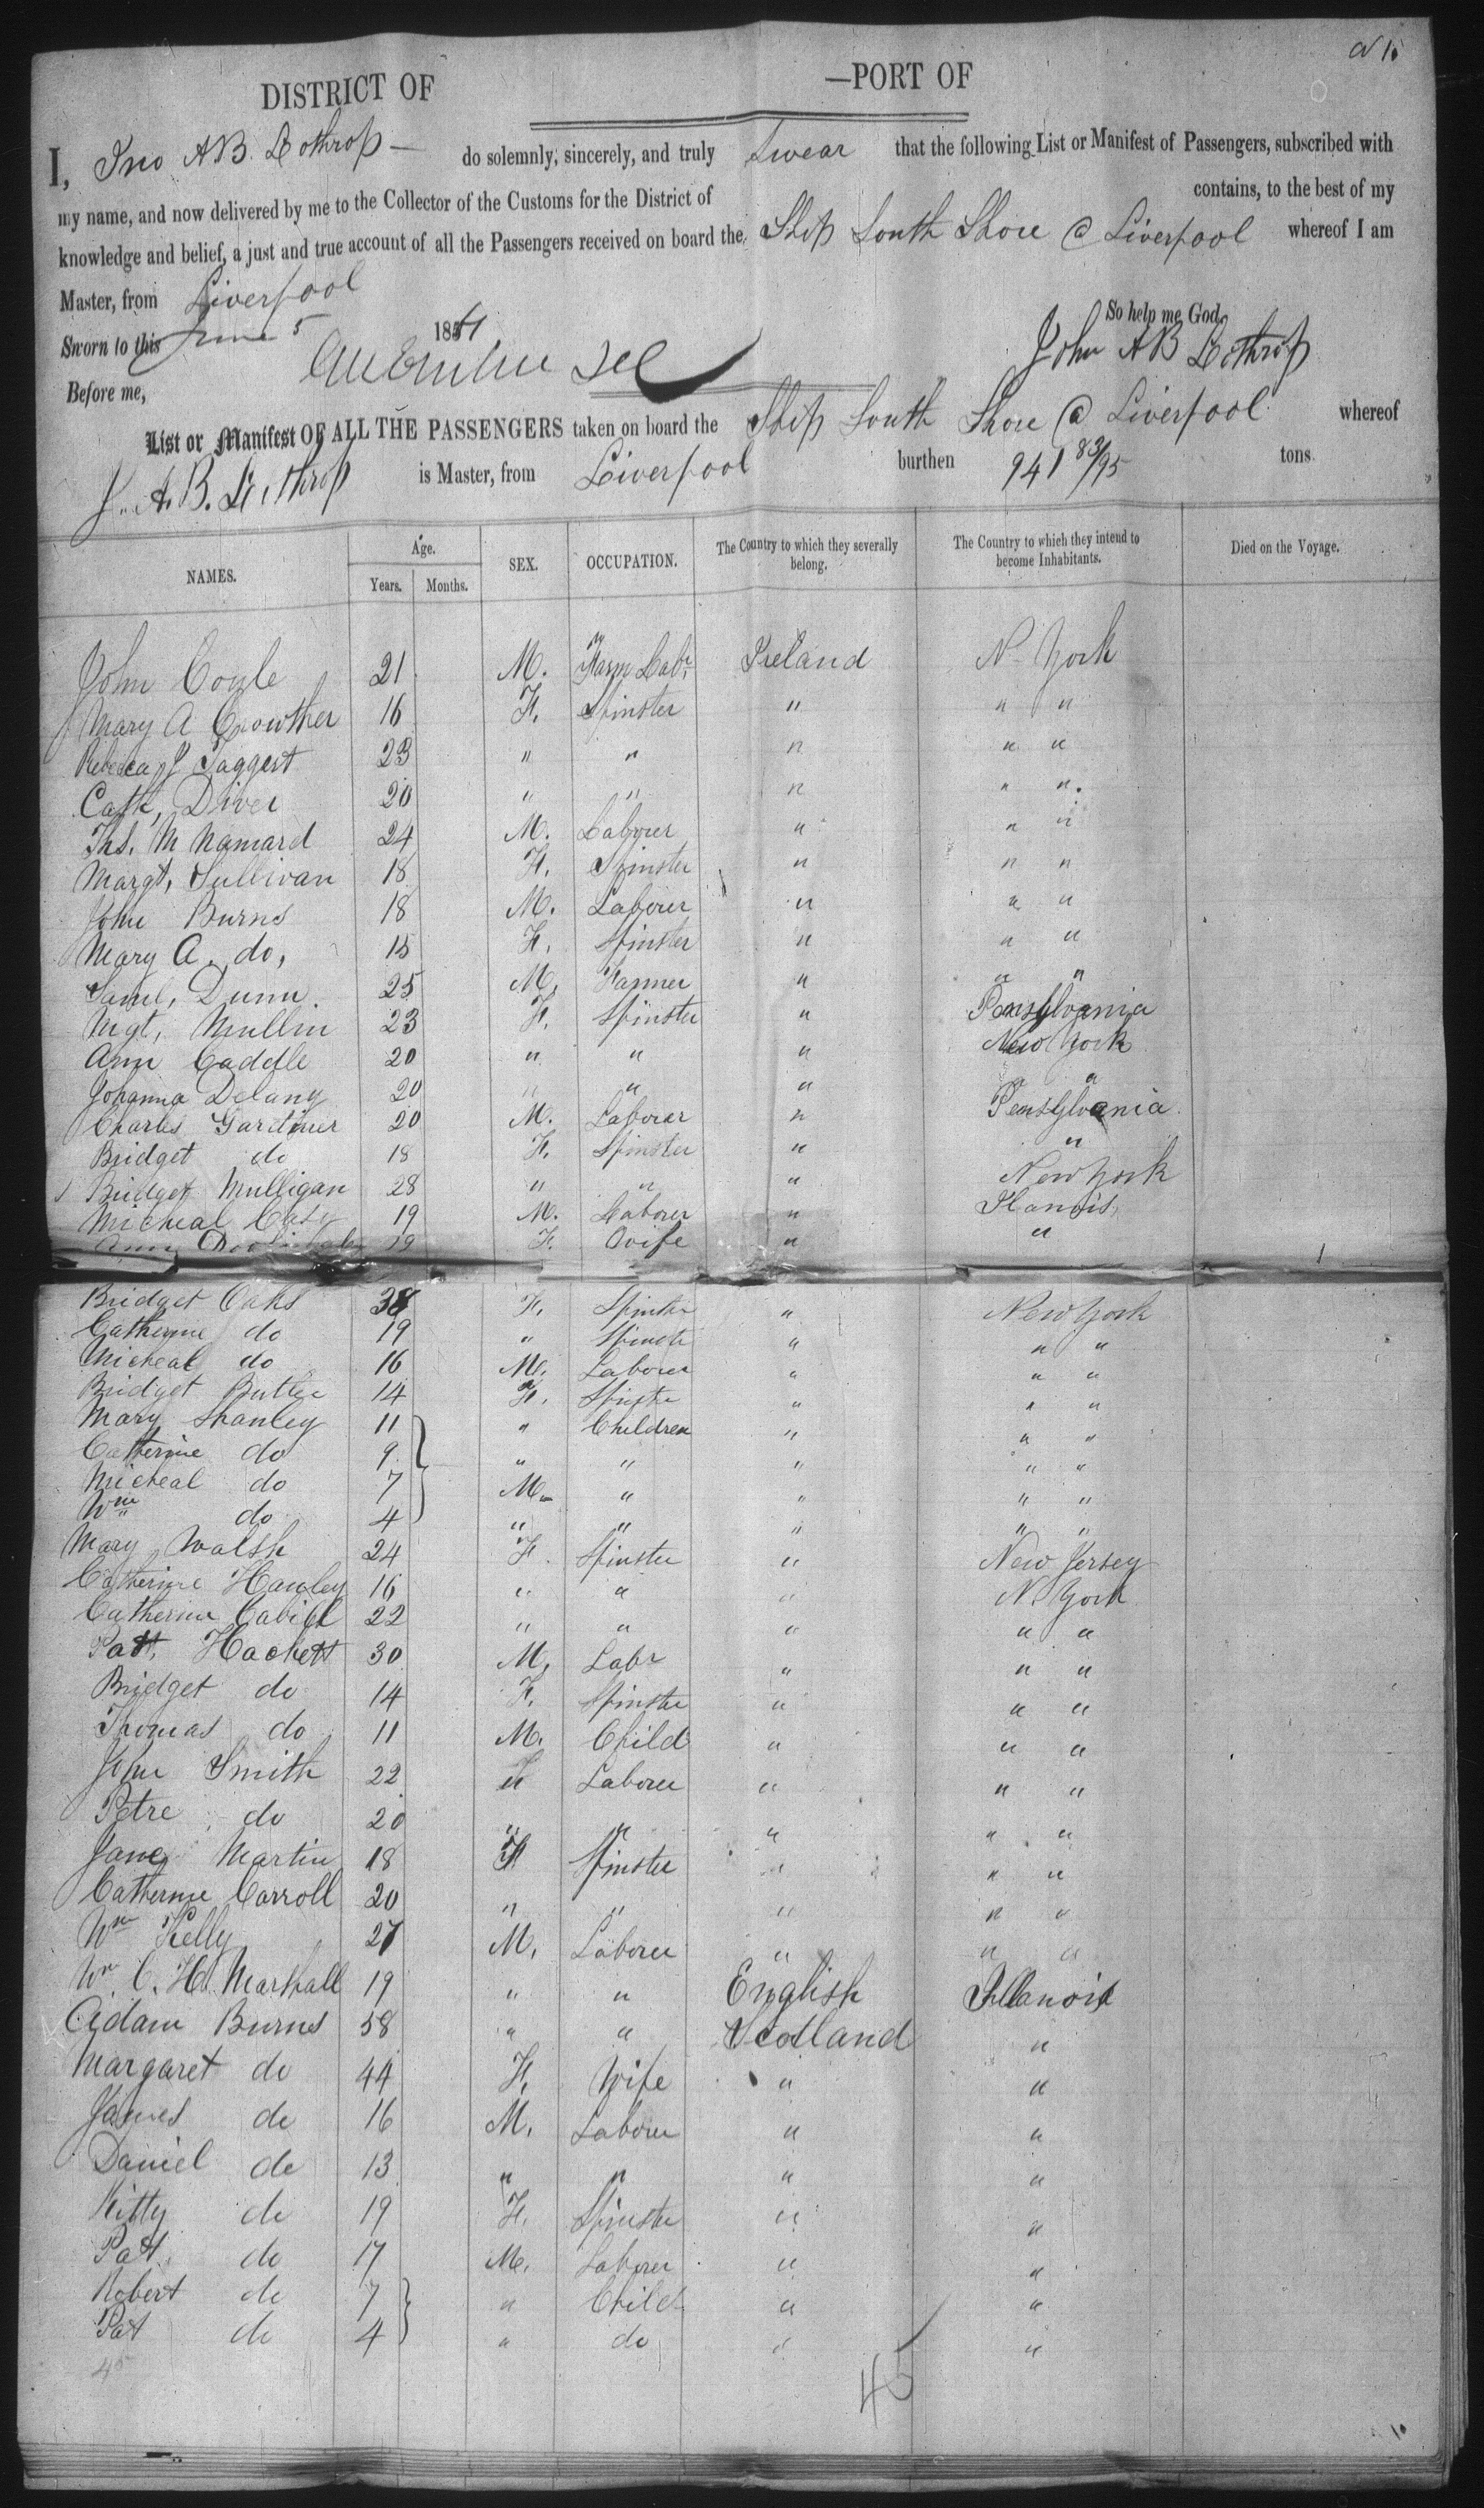 N 1.
DISTRICT OF —PORT OF
I, Jno A B. Lothrop — do solemnly, sincerely, and truly Swear that the following List or Manifest of Passengers, subscribed with
my name, and now delivered by me to the Collector of the Customs for the District of contains, to the best of my
knowledge and belief, a just and true account of all the Passengers received on board the Ship South Shore @ Liverpool whereof I am
Master, from Liverpool
So help me God.
Sworn to this June 5 1851
John A B Lothrop
Before me,
List or Manifest OF ALL THE PASSENGERS taken on board the Ship South Shore @ Liverpool whereof
J. A. B. Lothrop is Master, from Liverpool burthen 941 83/95 tons
NAMES. Age. Years. Months. SEX. OCCUPATION. The Country to which they severally belong. The Country to which they intend to become Inhabitants. Died on the Voyage.
John Coyle 21 M. Farm Labr Ireland N. York
Mary A Crowther 16 F. Spinster " " "
Rebecca J Taggert 23 " " " " "
Cath, Diver 20 " " " " "
Ths. Mc Namard 24 M. Laborer " " "
Margt, Sullivan 18 F. Spinster " " "
John Burns 18 M. Laborer " " "
Mary A. do, 15 F. Spinster " " "
Saml, Dunn. 25 M. Farmer " " "
Mgt, Mullin 23 F. Spinster " Pensylvania
Ann Caddle 20 " " " New York
Johanna Delany 20 " " " "
Charles Gardiner 20 M. Laborer " Pensylvania
Bridget do 18 F. Spinster " "
Bridget Mulligan 28 " " " New York
Micheal Casy 19 M. Laborer " Ilanois,
Ann 19 F. Wife " "
Bridget Oaks 38 F. Spinster " New York
Catherine do 19 " Spinster " " "
Micheal do 16 M. Laborer " " "
Bridget Butler 14 F. Spinster " " "
Mary Shanley 11 " Children " " "
Catherine do 9 " " " " "
Micheal do 7 M. " " " "
Wm do 4 " " " " "
Mary Walsh 24 F. Spinster " New Jersey
Catherine Hanley 16 " " " N. York
Catherine Cahill 22 " " " " "
Patt, Hackett 30 M. Labr " " "
Bridget do 14 F. Spinster " " "
Thomas do 11 M. Child " " "
John Smith 22 " Laborer " " "
Petre do 20 " " " " "
Jane Martin 18 F Spinster " " "
Catherine Carroll 20 " " " " "
Wm Kelly 27 M. Laborer " " "
Wm C. H. Marshall 19 " " English Illanois
Adam Burns 58 " " Scotland "
Margaret do 44 F. Wife " "
James do 16 M. Laborer " "
Daniel do 13 " " " "
Kitty do 19 F. Spinster " "
Patt do 17 M. Laborer " "
Robert do 7 " Child " "
Pat do 4 " do " "
45
45